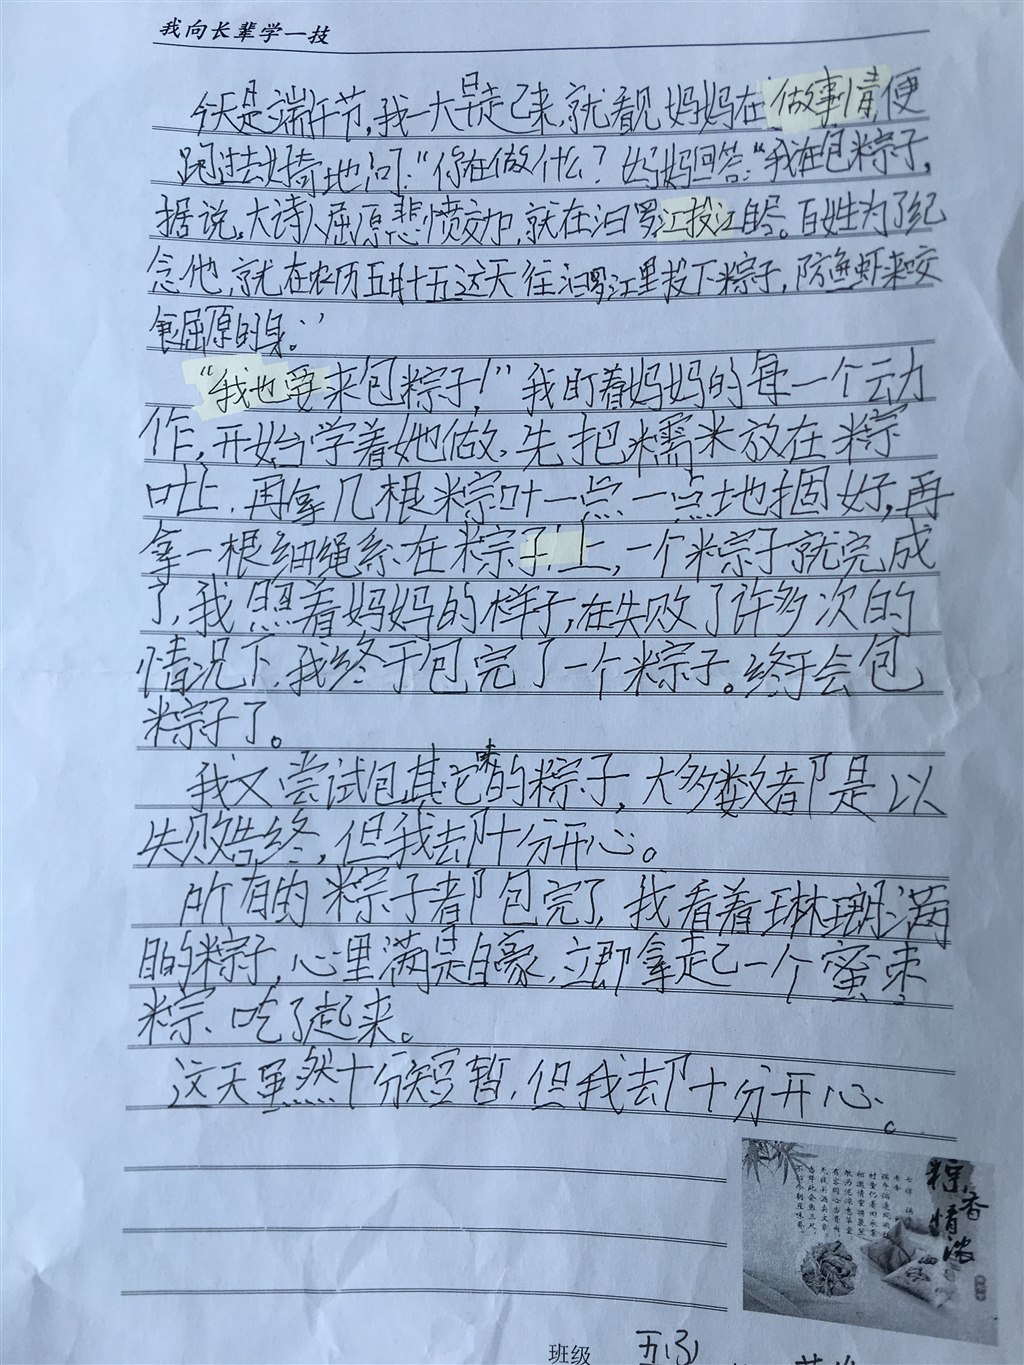 我向长辈学一技
今天是端午节,我一大早起来,就看见妈妈在做事情,便
跑过去好奇地问:“你在做什么?妈妈回答:“我在包粽子,
据说,大诗人屈原悲愤交加,就在汨罗江投江自尽。百姓为了纪
念他,就在农历五月十五这天往汨罗江里投下粽子,防鱼虾来咬
食屈原的身。”
“我也要来包粽子!”我盯着妈妈的每一个动
作,开始学着她做,先把糯米放在粽
叶上,再拿几根粽叶一点一点地捆好,再
拿一根细绳系在粽子上,一个粽子就完成
了,我照着妈妈的样子,在失败了许多次的
情况下,我终于包完了一个粽子。终于会包
粽子了。
我又尝试包其它味的粽子,大多数都是以
失败告终,但我却十分开心。
所有的粽子都包完了,我看着琳瑯满
目的粽子,心里满是自豪,立即拿起一个蜜枣
粽、吃了起来。
这天虽然十分短暂,但我却十分开心。
粽香
情浓
班级